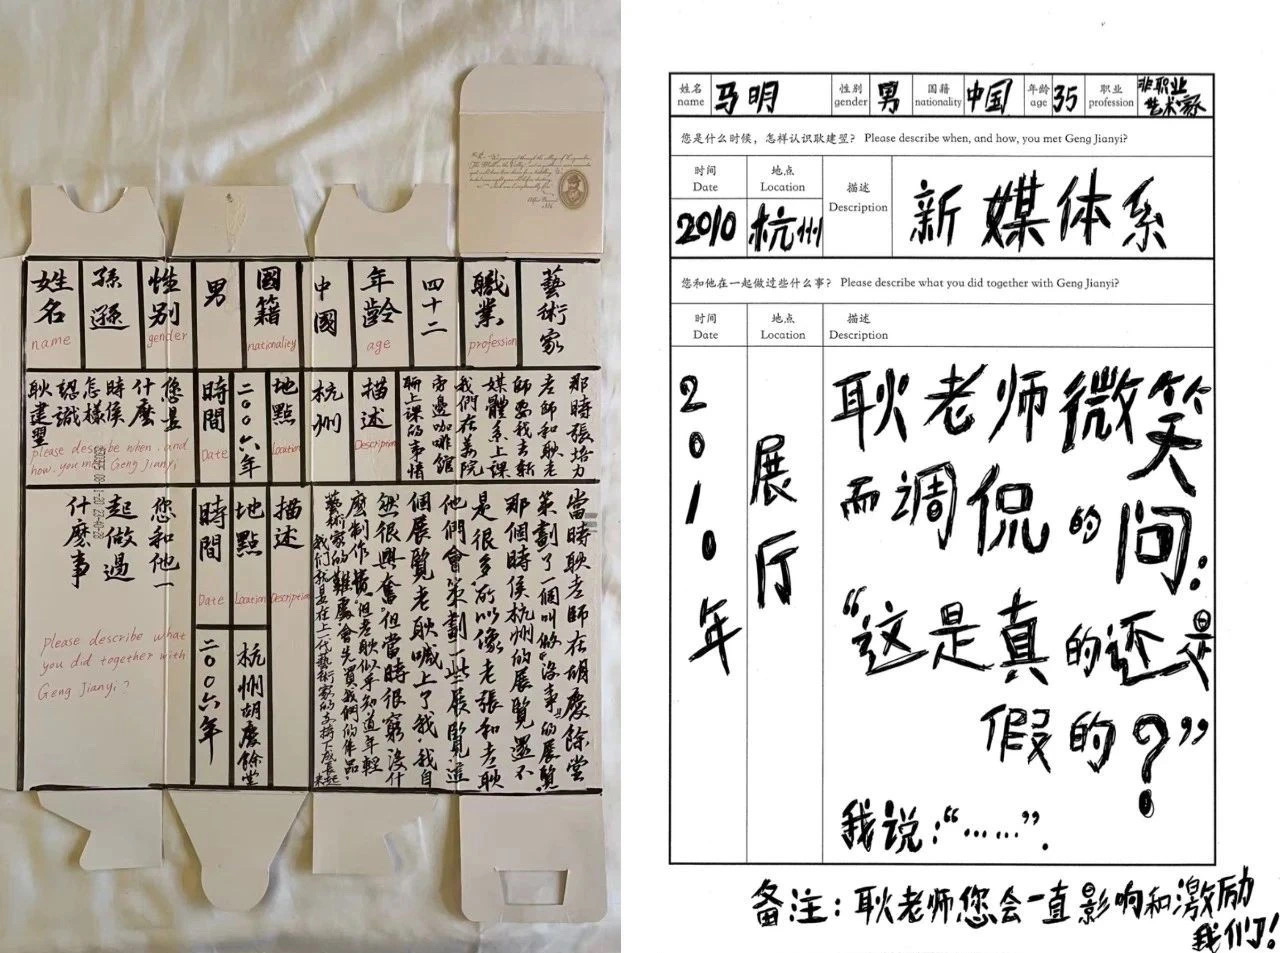 姓名
name
孫遜
性别
gender
男
國籍
nationality
中國
年齡
age
四十二
職業
profession
藝術家
您是
什麼
時侯
怎樣
認識
耿建翌
please describe when, and
how, you met Geng Jianyi
時間
Date
二00六年
地點
Location
杭州
描述
Description
那時張培力
老師和耿老
師要我去新
媒體系上課
我們在美院
旁邊咖啡館
聊上課的事情
您和他一
起做過
什麼事
Please describe what
you did together with
Geng Jianyi?
時間
Date
二00六年
地點
Location
杭州胡慶餘堂
描述
Description
當時耿老師在胡慶餘堂
策劃了一個叫做“沒事”的展覽
那個時侯杭州的展覽還不
是很多,所以像老張和老耿
他們會策劃一些展覽這
個展覽老耿喊上了我。我自
然很興奮,但當時很窮沒什
麼制作費。但老耿似乎知道年輕
藝術家的難處會先買我們的作品。
我們就是在上一代藝術家的支持下成長起來
姓名
name
马明
性别
gender
男
国籍
nationality
中国
年龄
age
35
职业
profession
非职业
艺术家
您是什么时候，怎样认识耿建翌？ Please describe when, and how, you met Geng Jianyi?
时间
Date
地点
Location
描述
Description
2010
杭州
新媒体系
您和他在一起做过些什么事？ Please describe what you did together with Geng Jianyi?
时间
Date
地点
Location
描述
Description
2010年
展厅
耿老师微笑
而调侃的问：
“这是真的还是
假的？”
我说：“……”.
备注：耿老师您会一直影响和激励
我们！